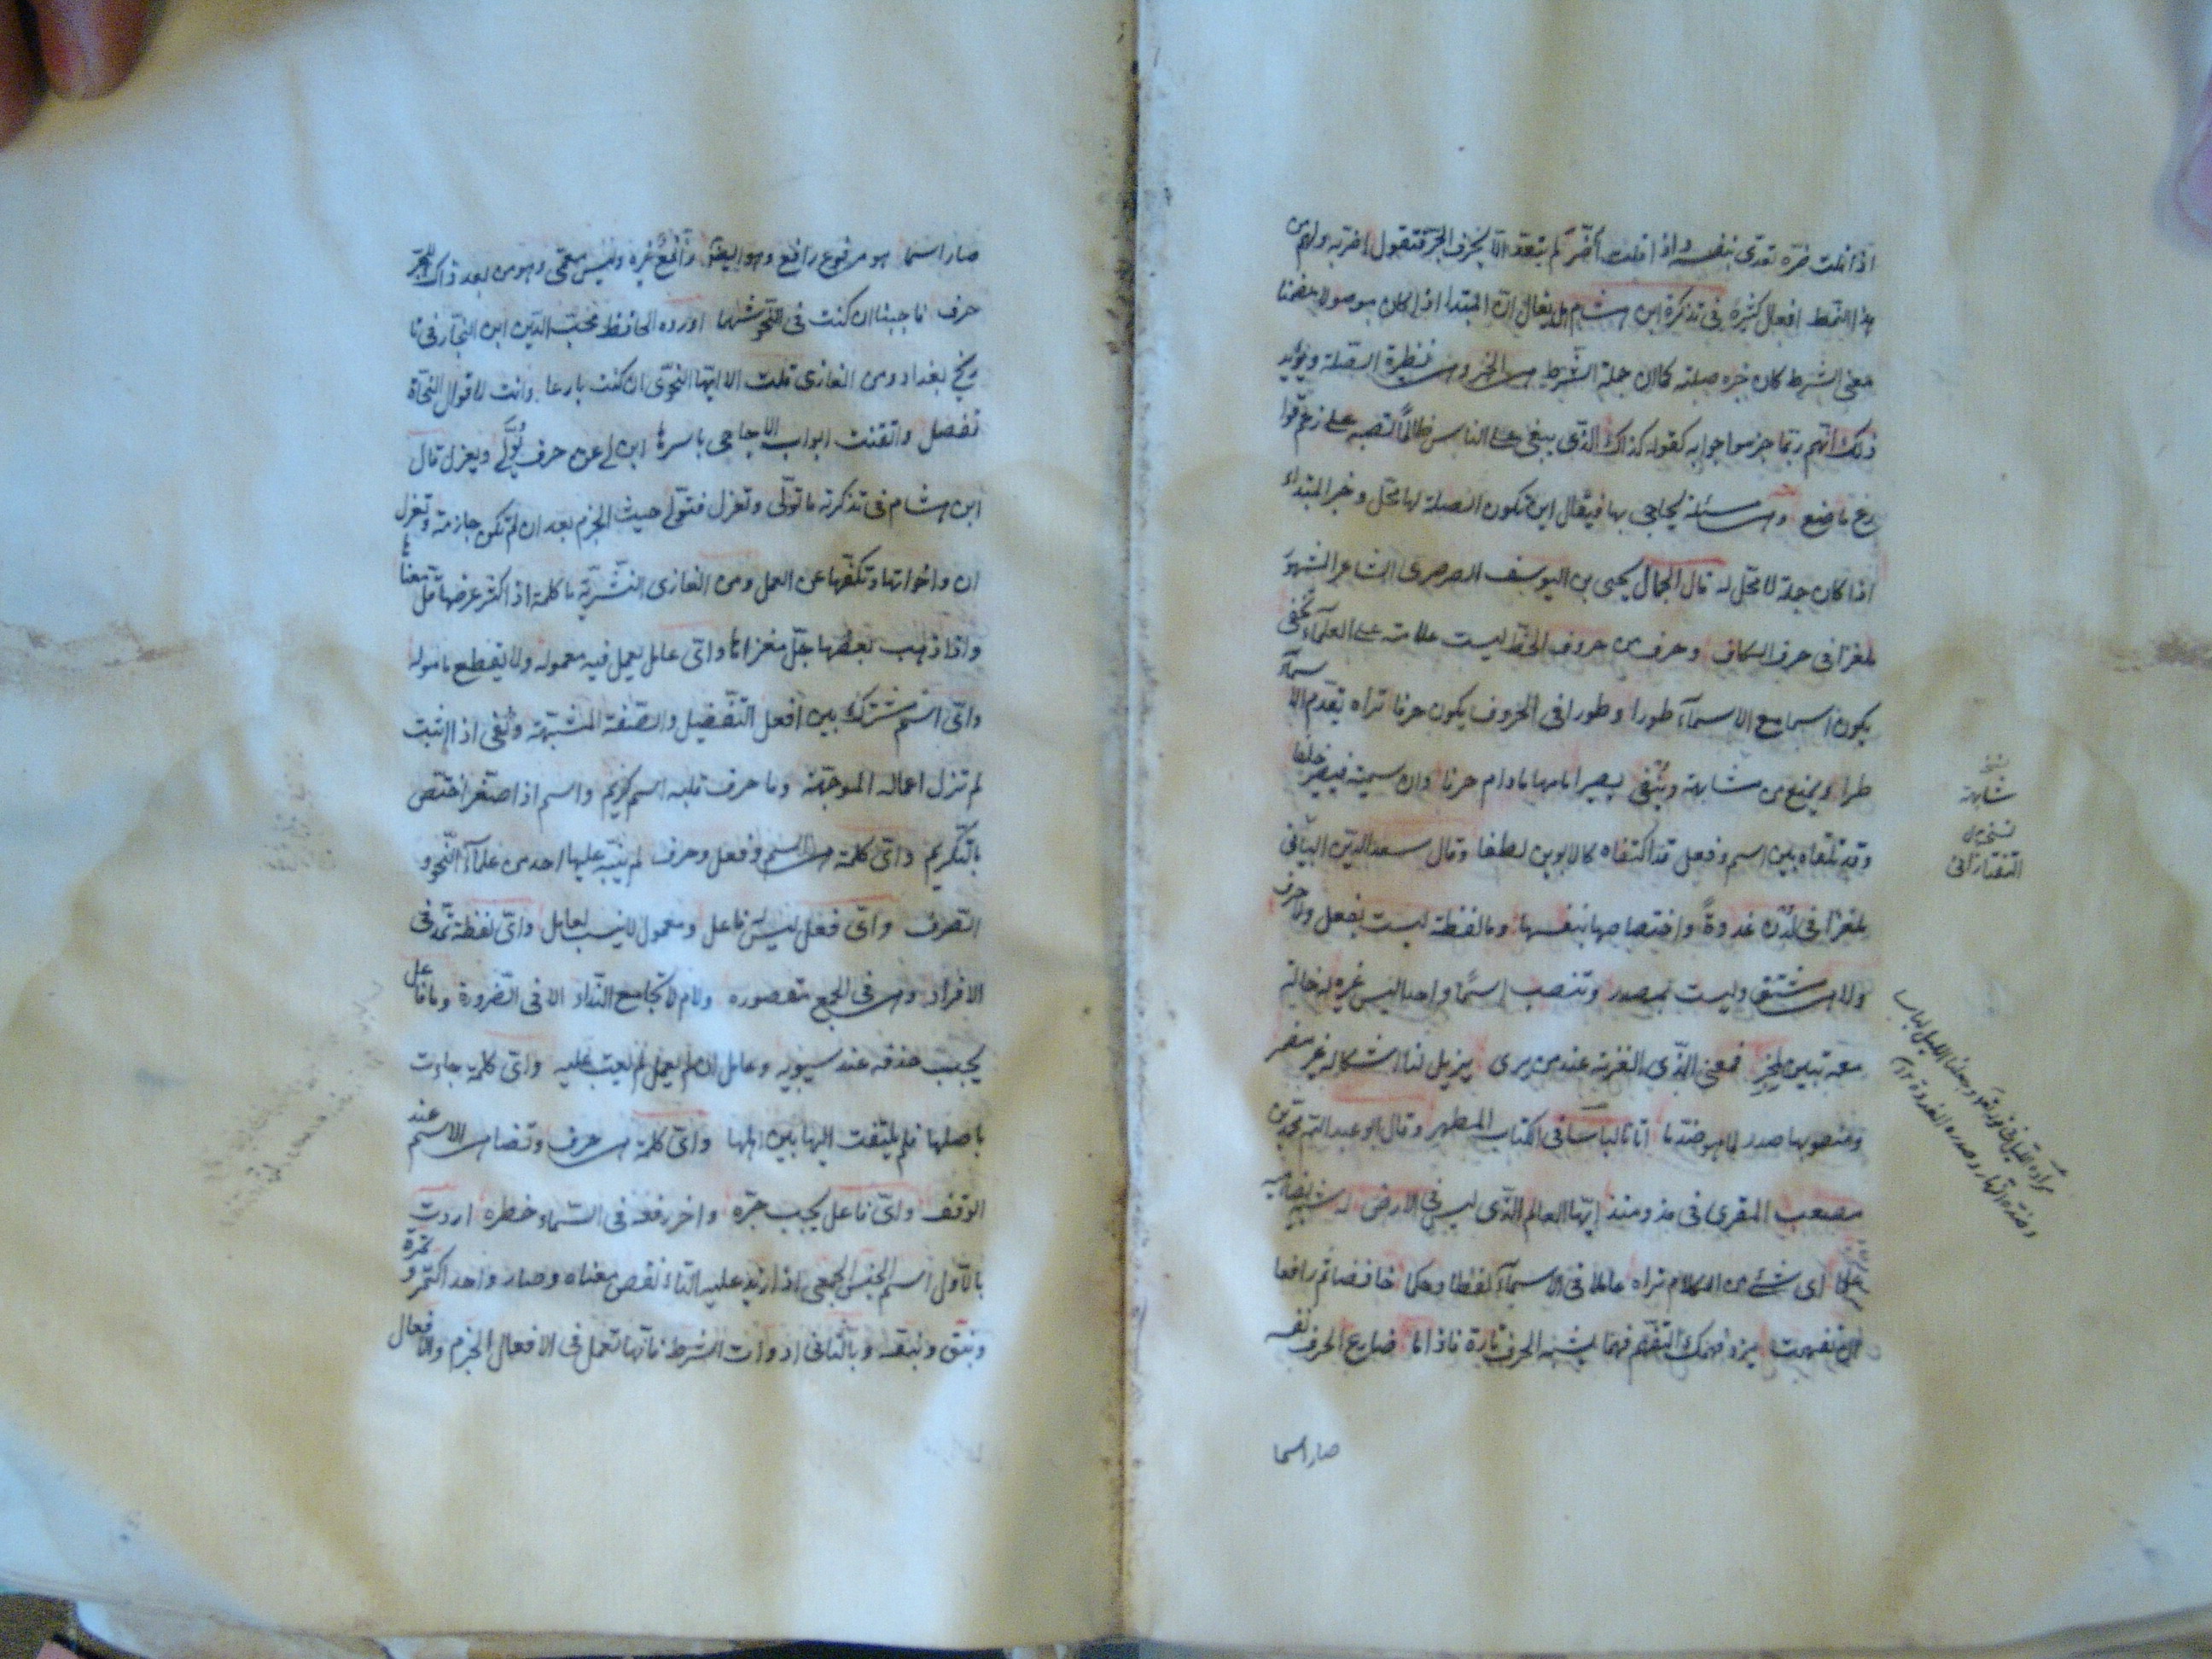 اذا قلت ضرّه تعدّى بنفسه واذا قلت أضرّ لم يتعدّ الّا بحرف الجرّ فتقول اضرّ به ولهم من
هذا النمط افعال كثيرة فى تذكرة ابن هشام هل يقال انّ المبتدأ اذا كان موصولا مضمنا
معنى الشرط كان خبره صلته كما ان جملة الشرط هى الخبر وهى نظيرة الصّلة ويؤيد
ذلك انّهم ربّما جزموا جوابه كقوله كذاك الذّى يبغى على الناس ظالمًا تصبه على رغم
رغم ما صنع وهى مسئلة يحاجى بها فيقال اين تكون الصلة لها محلّ وخبر المبتداء
اذا كان جملة لا محلّ له قال الجمال يحيى بن اليوسف الصرصرى الشاعر المشهور
ملغزا فى حرف الكاف وحرف من حروف الخطّ ليست علامته على العلماء تخفى
يكون اسما مع الاسمآء طورا وطورا فى الحروف يكون حرفا تراه يقدّم الاسمآء
طرا ويمنع من مشابهة وينفى يصير امامها مادام حرفا وان سميته فيصير خلفا
وقد تلقاه بين اسم وفعل قد اكتنفاه كالابوين لطفا وقال سعد الدّين البيانى
ملغزا فى لدن غدوةً واختصاصها بنفسها وما لفظة ليست بفعل ولا حرف
ولا هى مشتق وليست بمصدر وتنصب اسمًا واحدا ليس غيره له حالة
معه تبين لمخبر فمعنى الذّى الغزته عند من يرى يزيل لنا اشكاله غير مضمر
ومنصوبها صدر لما هو ضدّ ما اتانا لباسا فى الكتاب المطهر وقال ابو عبد الله محمّد بن
مصعب المقرى فى مذ ومنذ ايّها العالم الذّى ليس فى الارض له مشبه
اى شئ من الكلام تراه عاملا فى الاسمآء لفظا وحكما خافضا ثم رافعا
ان تفهمت يزد فهمك التفهم فهما يشبه الحرف تارة فاذا ما ضارع الحرف نفسه
صار اسما
نسخه
مشابهة
نسخه بدل
التفتازانى
صار اسما هو مرفوع رافع وهو ايضًا رافع غيره وليس معمّى وهو من بعد ذاك للجر
حرف فاجبنا ان كنت فى النّحو شهما اورده الحافظ محبّ الدّين ابن النجّار فى تا
ريخ بغداد ومن الغازى قلت الا ايّها النحوّى ان كنت بارعا وانت لاقوال النحّاة
تفصل واتقنت ابواب الاحاجى باسرها ابن لى عن حرف يُولّى ويعزل قال
ابن هشام فى تذكرته ما تولّى وتعزل فتولّى حيث الجزم بعد ان لم تكن جازمة وتعزل
ان واخواتها وتكفّها عن العمل ومن الغازى النّثريّة ما كلمة اذا كثر عرضها قلّ معناها
واذا ذهب بعضها جلّ مغزاها واىّ عامل يعمل فيه معموله ولا يقطع ماموله
واىّ اسم مشترك بين افعل التّفضيل والصّفة المشبّهة ونفى اذا اثبت
لم تزل اعماله الموجبة وما حرف قلبه اسم كريم واسم اذا صغّر اختصّ
بالتّكريم واىّ كلمة هى اسم وفعل وحرف لم ينبّه عليها احد من علمآء النّحو و
التصرف واىّ فعل ليس له فاعل ومعمول لا ينسب لعامل واىّ لفظة تمدّ فى
الافراد وهى فى الجمع مقصوره ولام لا تجامع النّداء الا فى الضّرورة وما فاعل
يجب حذفه عند سيبويه وعامل ان لم يعمل لم يعتب عليه واىّ كلمة جاءت
باصلها فلم يلتفت اليها بين اهلها واىّ كلمة هى حرف وتضاهى الاسم عند
الوقف واىّ فاعل يجب جرّه واخر رفعه فى السّماء خطره اردت
بالاوّل اسم الجنس الجمعى اذا زيد عليه التاء نقص معناه وصار واحدا كتمر وتمرة
ونبق ونبقة وبالثانى ادوات الشرط فانّها تعمل فى الافعال الجزم والافعال